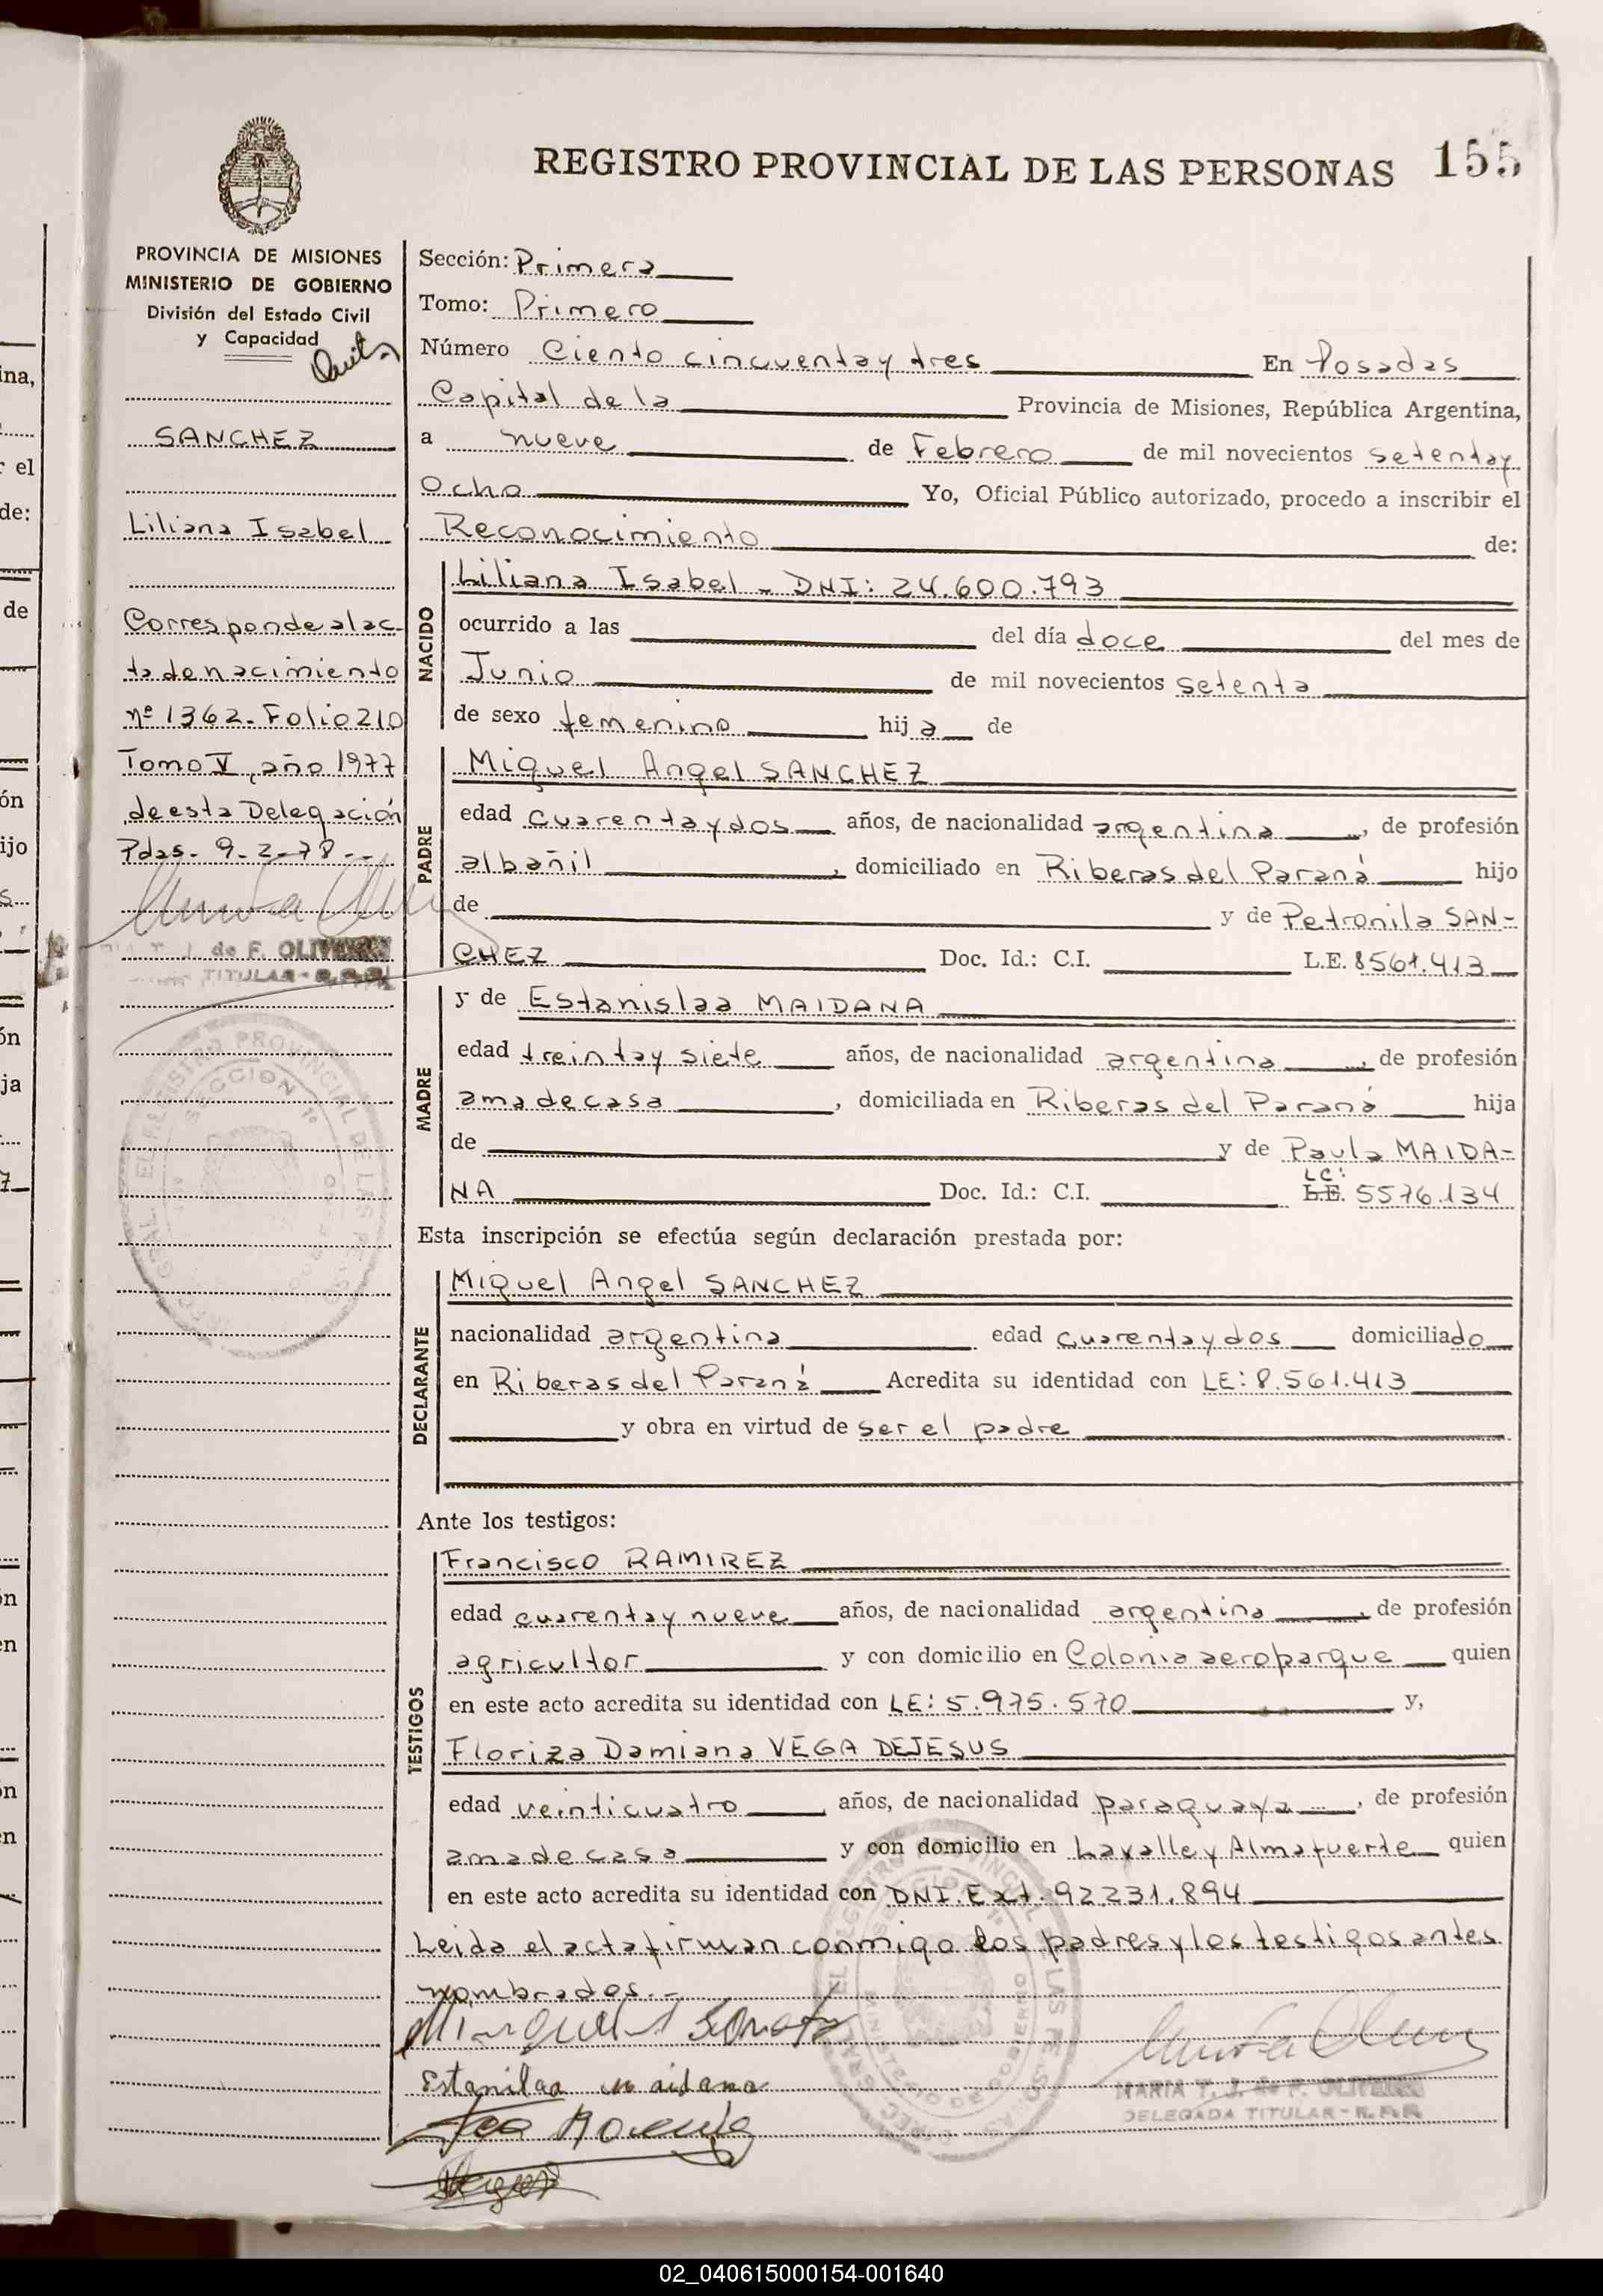 REGISTRO PROVINCIAL DE LAS PERSONAS 155
PROVINCIA DE MISIONES
MINISTERIO DE GOBIERNO
División del Estado Civil
y Capacidad
SANCHEZ
Liliana Isabel
Corresponde al ac-
ta de nacimiento
nº 1362. Folio 210
Tomo V, año 1977
de esta Delegación
Pdas. 9-2-78--
de F. OLIVEIRA
TITULAR - R.P.P.
Sección: Primera
Tomo: Primero
Número Ciento cincuenta y tres En Posadas
Capital de la Provincia de Misiones, República Argentina,
a nueve de Febrero de mil novecientos setenta y
Ocho Yo, Oficial Público autorizado, procedo a inscribir el
Reconocimiento de:
NACIDO
Liliana Isabel - DNI: 24.600.793
ocurrido a las del día doce del mes de
Junio de mil novecientos setenta
de sexo femenino hija de
PADRE
Miguel Angel SANCHEZ
edad cuarenta y dos años, de nacionalidad argentina, de profesión
albañil, domiciliado en Riberas del Paraná hijo
de y de Petronila SAN-
CHEZ Doc. Id.: C.I. L.E. 8561.413
MADRE
y de Estanislaa MAIDANA
edad treinta y siete años, de nacionalidad argentina, de profesión
ama de casa, domiciliada en Riberas del Paraná hija
de y de Paula MAIDA-
NA Doc. Id.: C.I. L.E. LC: 5576.134
Esta inscripción se efectúa según declaración prestada por:
DECLARANTE
Miguel Angel SANCHEZ
nacionalidad argentina edad cuarenta y dos domiciliado
en Riberas del Paraná Acredita su identidad con LE: 8.561.413
y obra en virtud de ser el padre
Ante los testigos:
TESTIGOS
Francisco RAMIREZ
edad cuarenta y nueve años, de nacionalidad argentina, de profesión
agricultor y con domicilio en Colonia aeroparque quien
en este acto acredita su identidad con LE: 5.975.570 y,
Floriza Damiana VEGA DEJESUS
edad veinticuatro años, de nacionalidad paraguaya, de profesión
ama de casa y con domicilio en Lavalle y Almafuerte quien
en este acto acredita su identidad con DNI. Ext. 92.231.894
Leida el acta firman conmigo los padres y los testigos antes
nombrados.-
Estanilaa maidana
MARIA T. J. de F. OLIVEIRA
DELEGADA TITULAR - R.P.P.
02_040615000154-001640